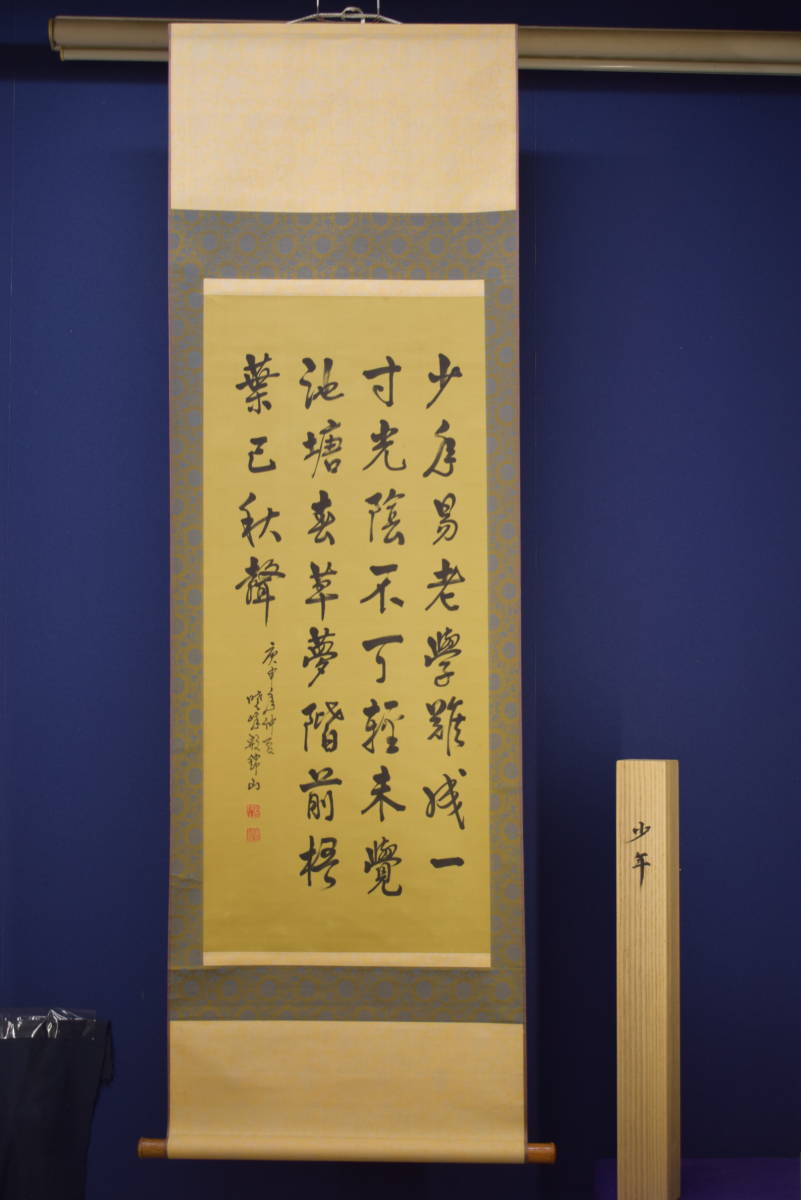 少年易老學難成一
寸光陰不可輕未覺
池塘春草夢階前梧
葉已秋聲
庚申年仲夏
錦山
少年